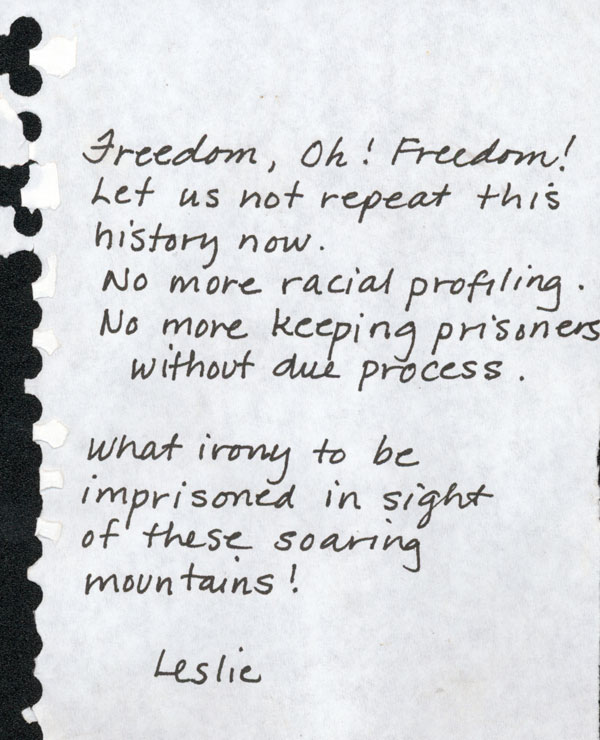 Freedom, Oh! Freedom!
Let us not repeat this
history now.
No more racial profiling.
No more keeping prisoners
without due process.
What irony to be
imprisoned in sight
of these soaring
mountains!
Leslie